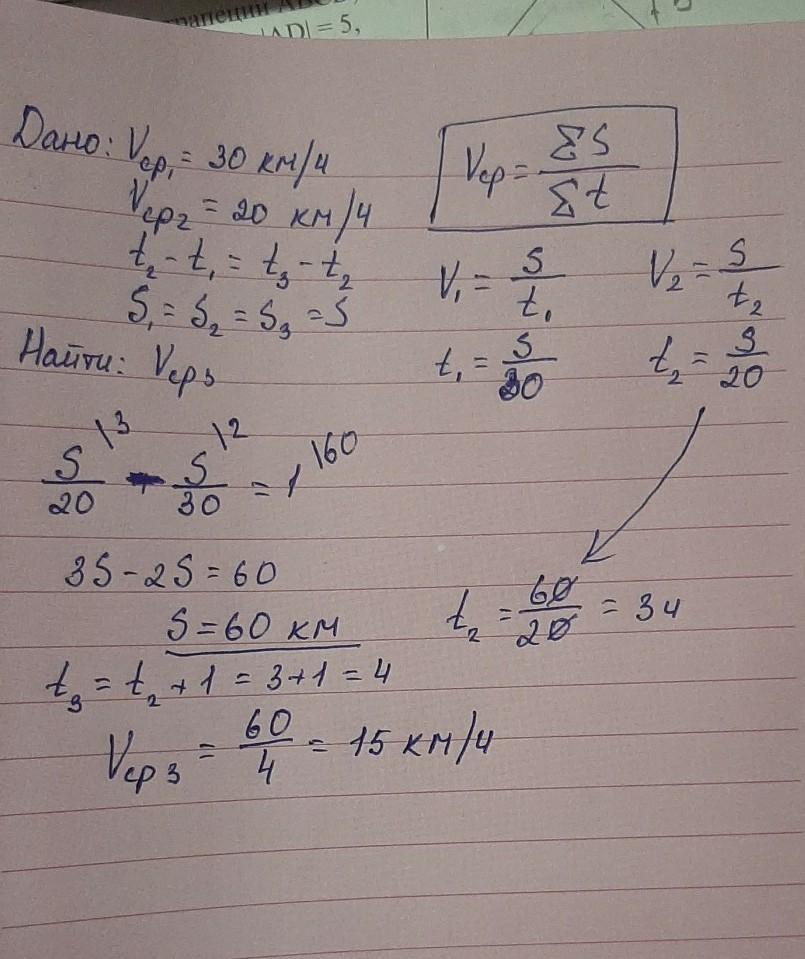 трапеции
|AD| = 5,
Дано: Vср₁ = 30 км/ч
Vср₂ = 20 км/ч
t₂ - t₁ = t₃ - t₂
S₁ = S₂ = S₃ = S
Найти: Vср₃
Vср = ΣS / Σt
V₁ = S / t₁
V₂ = S / t₂
t₁ = S / 30
t₂ = S / 20
S / 20 \3 - S / 30 \2 = 1 \60
3S - 2S = 60
S = 60 км
t₂ = 60 / 20 = 3 ч
t₃ = t₂ + 1 = 3 + 1 = 4
Vср 3 = 60 / 4 = 15 км/ч